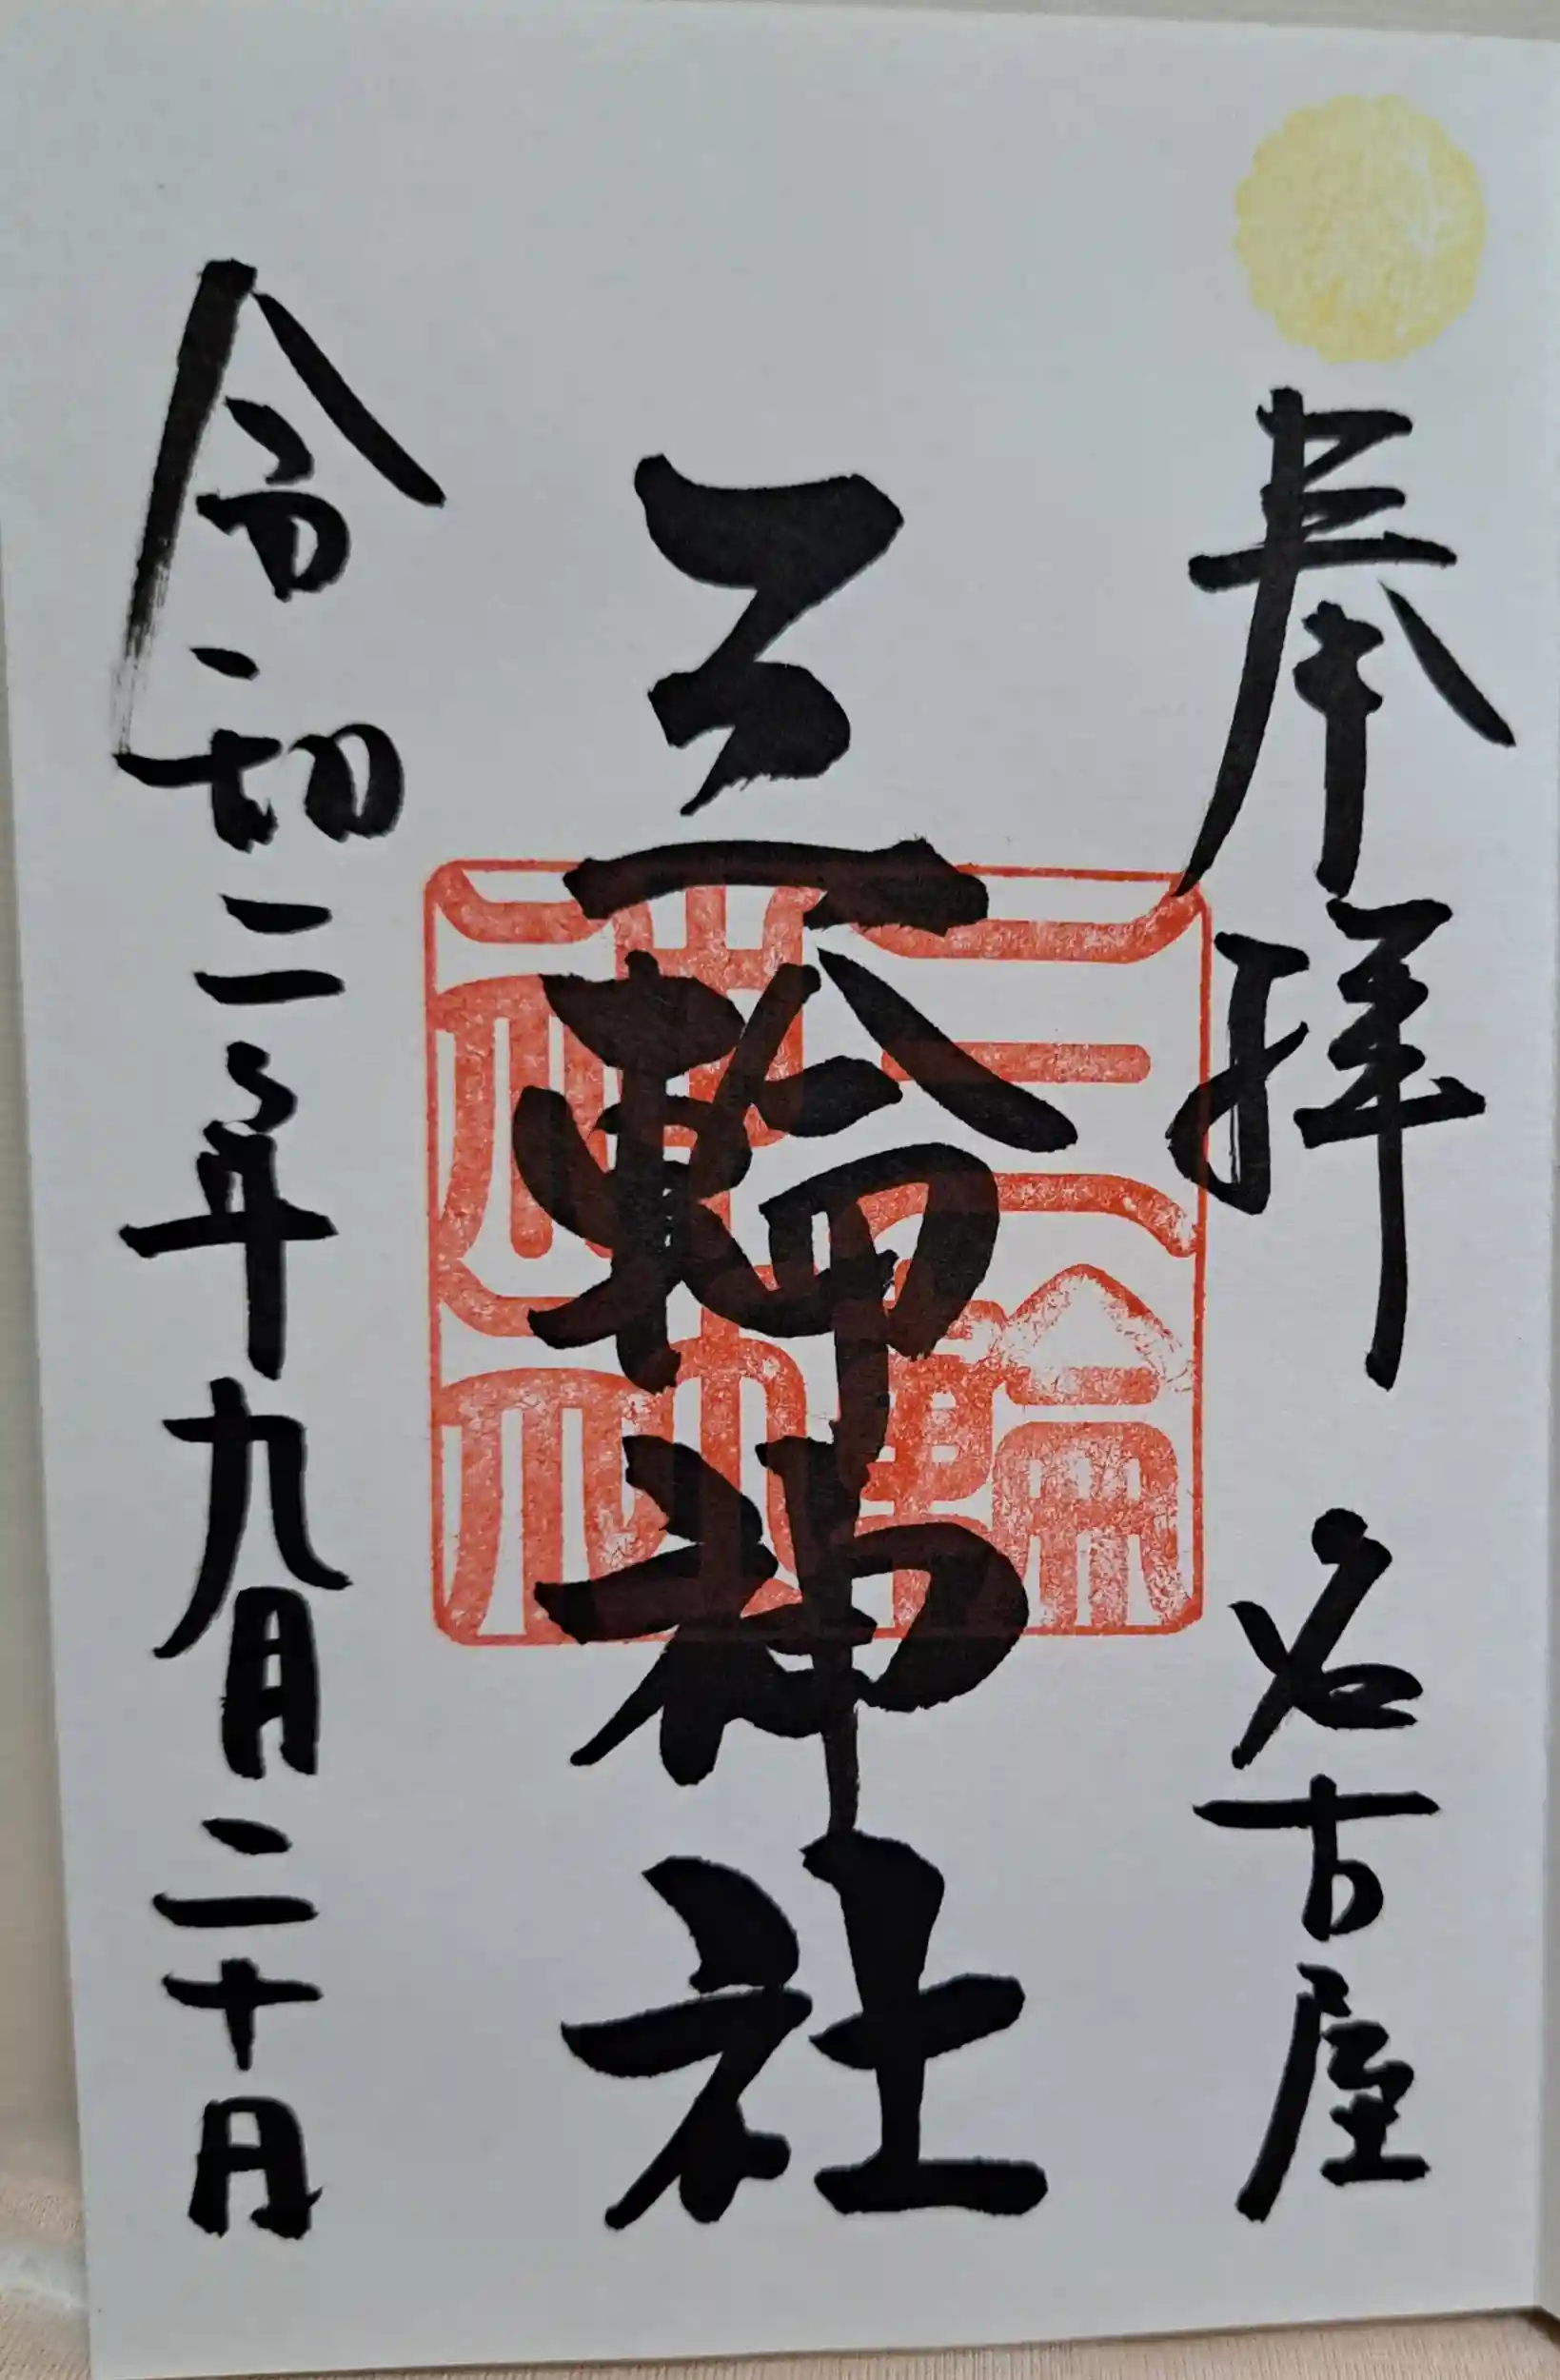 奉拝 名古屋
三輪神社
令和二年九月二十日
三輪
神社